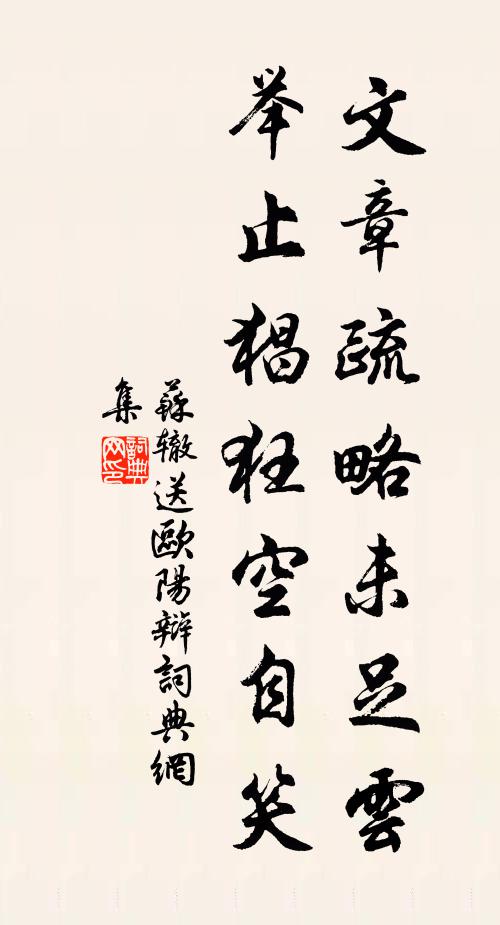 文章疏略未足雲
举止猖狂空自笑
蘇辙送歐陽辯詞典網
集
詞典网印